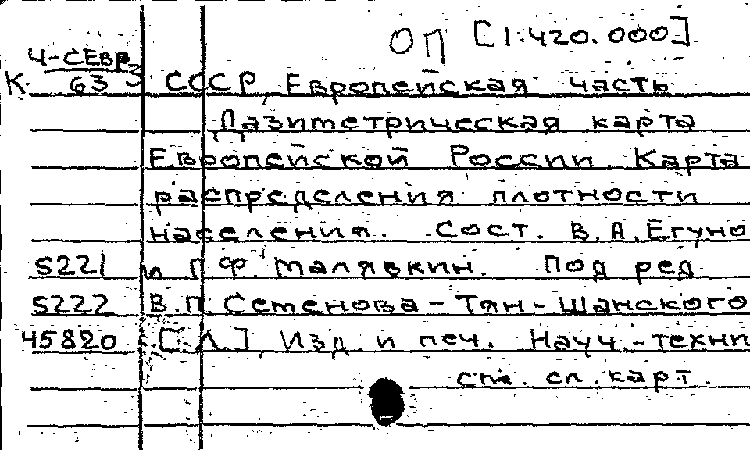 ОП [1:420.000]
Ч-СЕВР
К 63 СССР, Европейская часть
Дазиметрическая карта
Европейской России. Карта
распределения плотности
населения. Сост. В.А.Егуно
5221 и Г.Ф. Малявкин. Под ред
5222 В.П.Семенова-Тян-Шанского
45820 [ Л.] Изд. и печ. Науч.-техни
сл.карт.